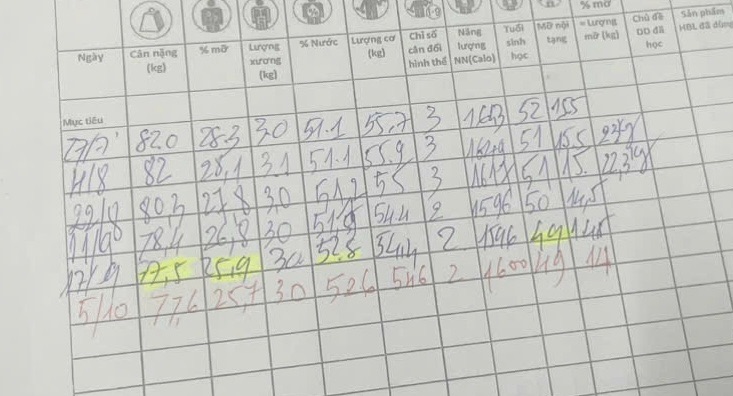 % mỡ
Ngày Cân nặng (kg) % mỡ Lượng xương (kg) % Nước Lượng cơ (kg) Chỉ số cân đối hình thể Năng lượng NN(Calo) Tuổi sinh học Mỡ nội tạng = Lượng mỡ (kg) Chủ đề DD đã học Sản phẩm HBL đã dùng
Mục tiêu
27/7 82.0 28.3 30 51.1 55,7 3 1653 52 155
4/8 82 28,1 3.1 51.1 55.9 3 51 15.5
22/8 80 27,8 3,0 55 3 51 15. 22,3kg
11/9 78,4 26,8 30 51,9 54.4 2 1596 50 14,5
17/9 77,5 25,9 30 52.8 54,4 2 1596 49 145
5/10 77,6 25,7 30 526 546 2 1600 49 14